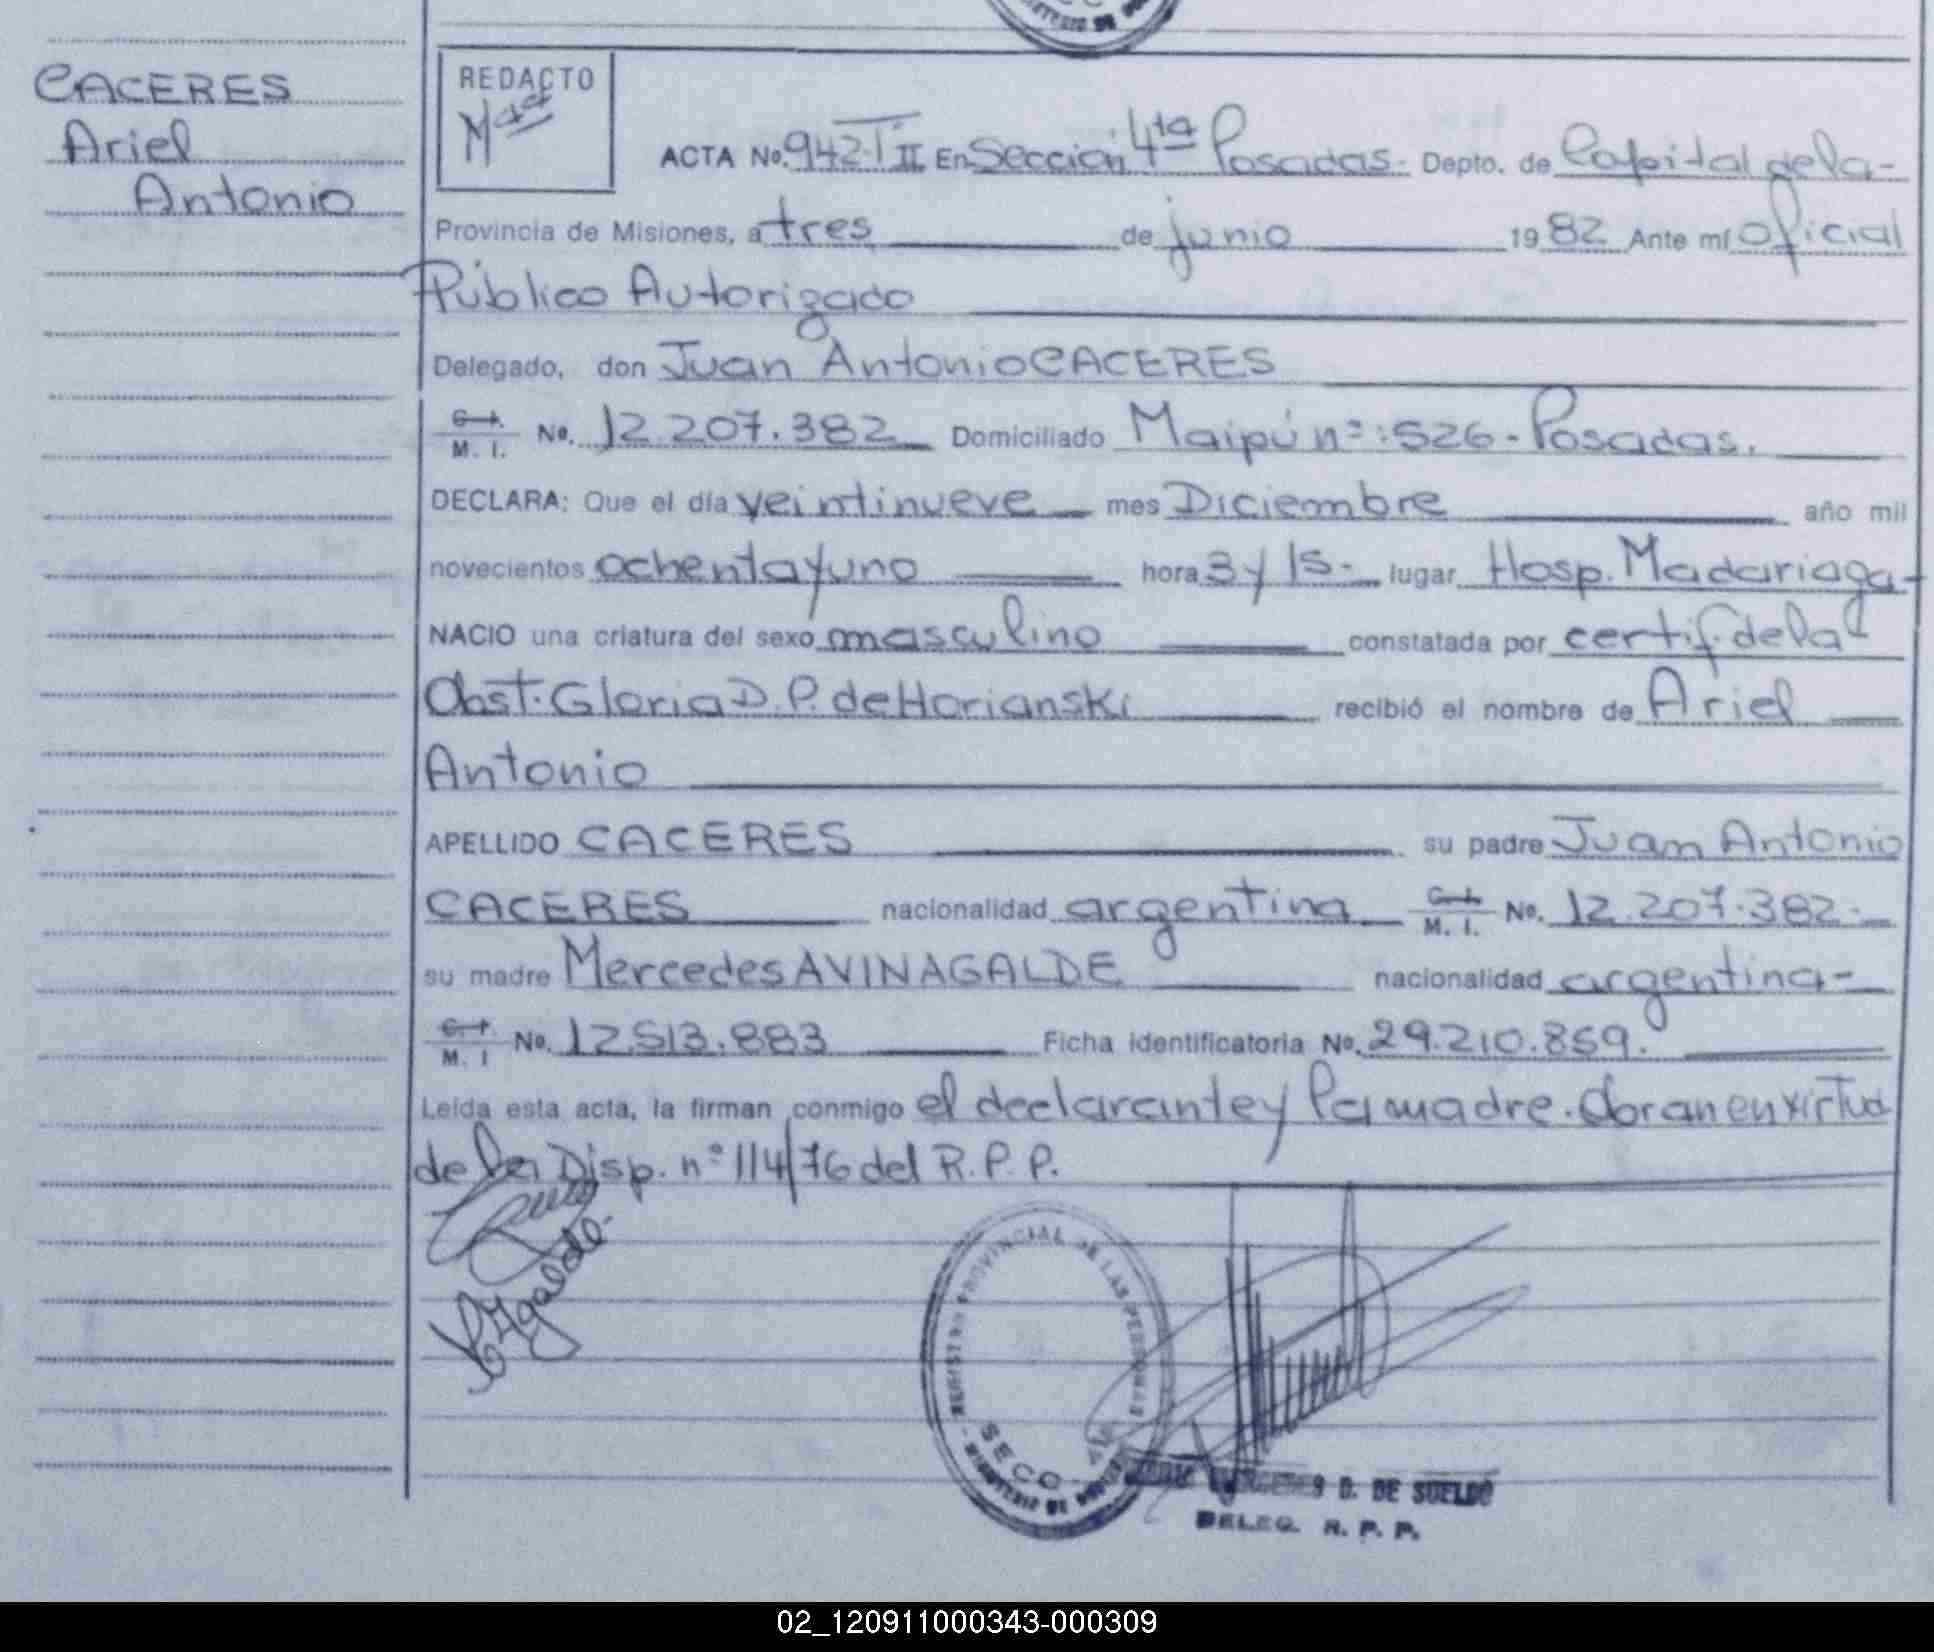 CACERES
Ariel
Antonio
REDACTO
ACTA No. 942-T II En Sección 4ta Posadas - Depto. de Capital de la -
Provincia de Misiones, a tres de junio 1982 Ante mí Oficial
Público Autorizado
Delegado, don Juan Antonio CACERES
M. I. No. 12.207.382 Domiciliado Maipú nº: 526 - Posadas.
DECLARA: Que el día veintinueve mes Diciembre año mil
novecientos ochenta y uno hora 3 y 15 - lugar Hosp. Madariaga -
NACIO una criatura del sexo masculino constatada por certif. de la
Obst. Gloria D. P. de Horianski recibió el nombre de Ariel
Antonio
APELLIDO CACERES su padre Juan Antonio
CACERES nacionalidad argentina M. I. No. 12.207.382 -
su madre Mercedes AVINAGALDE nacionalidad argentina -
M. I No. 12.513.883 Ficha identificatoria No. 29.210.859.
Leída esta acta, la firman conmigo el declarante y la madre. Obran en virtud
de la Disp. nº 114/76 del R. P. P.
REGISTRO PROVINCIAL DE LAS PERSONAS
SECC.
MINISTERIO DE
D. DE SUELDO
DELEG. R. P. P.
02_120911000343-000309